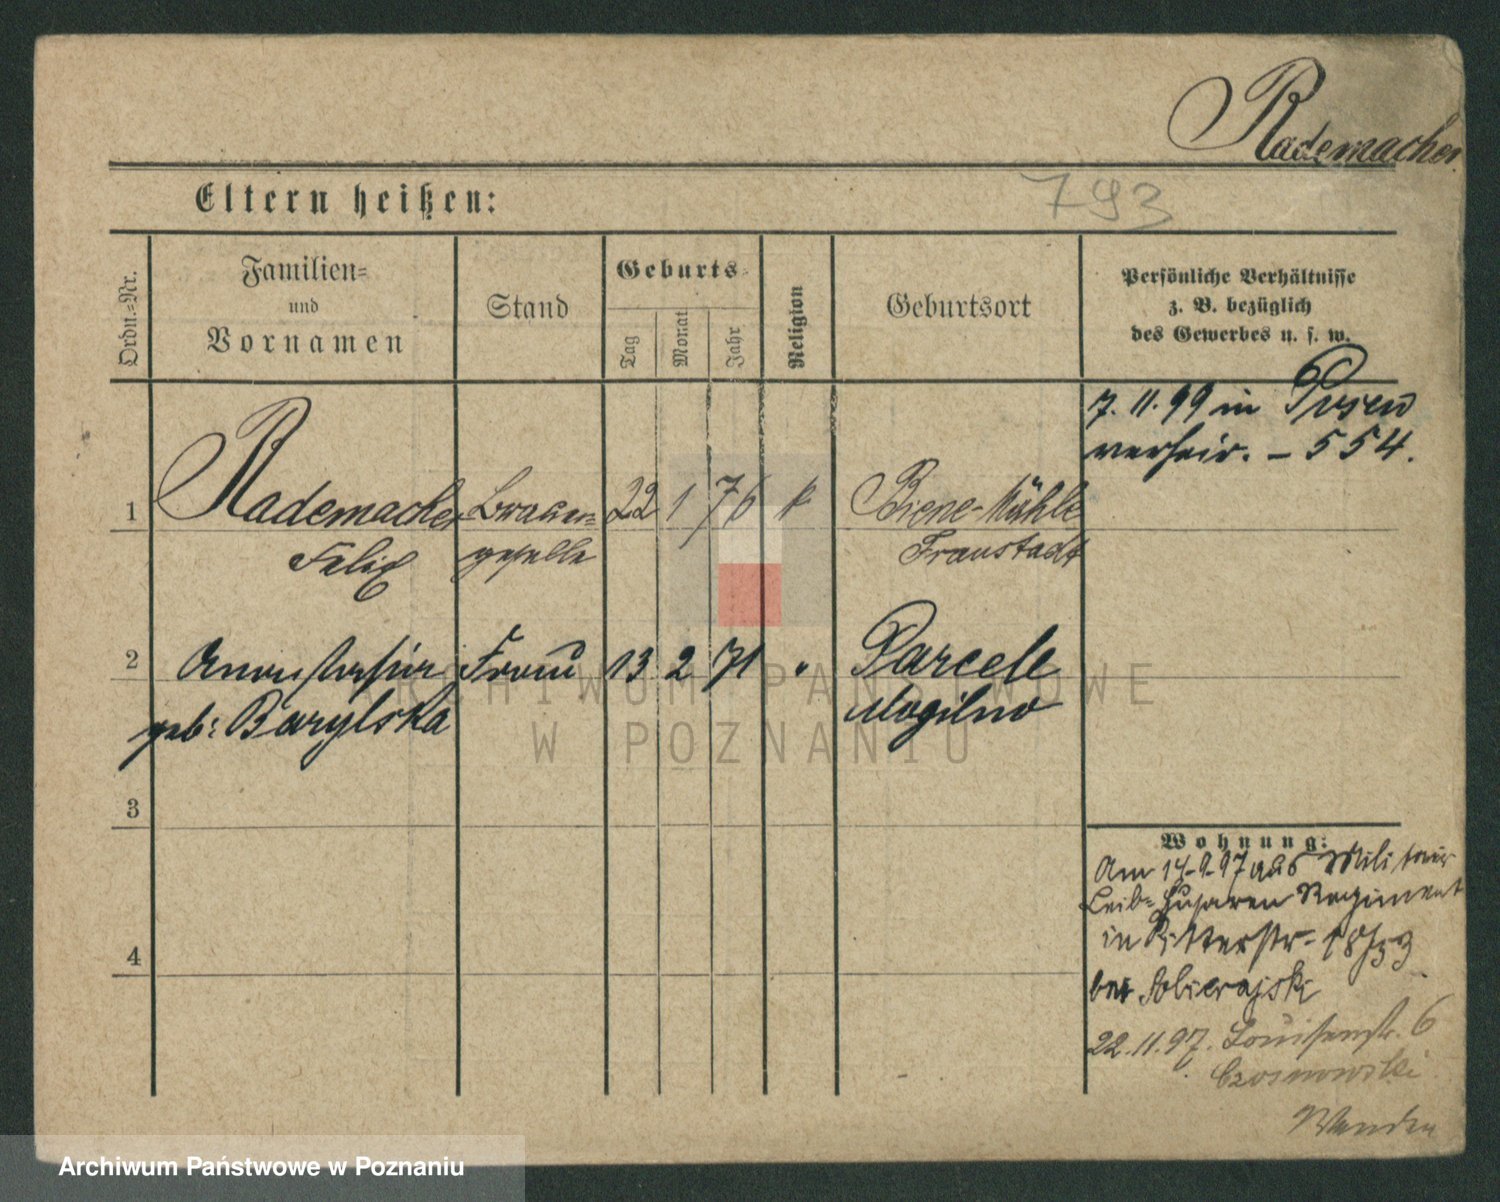 Rademacher
Eltern heißen:
793
Ordn.-Nr.
Familien-
und
Vornamen
Stand
Geburts-
Tag
Monat
Jahr
Religion
Geburtsort
Persönliche Verhältnisse
z. B. bezüglich
des Gewerbes u. s. w.
7. 11. 99 in Posen
verheir. - 554.
1 Rademacher Brauer= 22 1 76 k Biene-Mühle
Felix geselle Fraustadt
2 Anastasia Frau 13 2 71 " Parcele
geb: Barylska Mogilno
3
4
Wohnung:
Am 14-9-97 aus Militair
Leib=Husaren Regiment
in Ritterstr. 18/33
bei
22.11.97. Louisenstr. 6
Czosnowski
ARCHIWUM PAŃSTWOWE
W POZNANIU
Archiwum Państwowe w Poznaniu